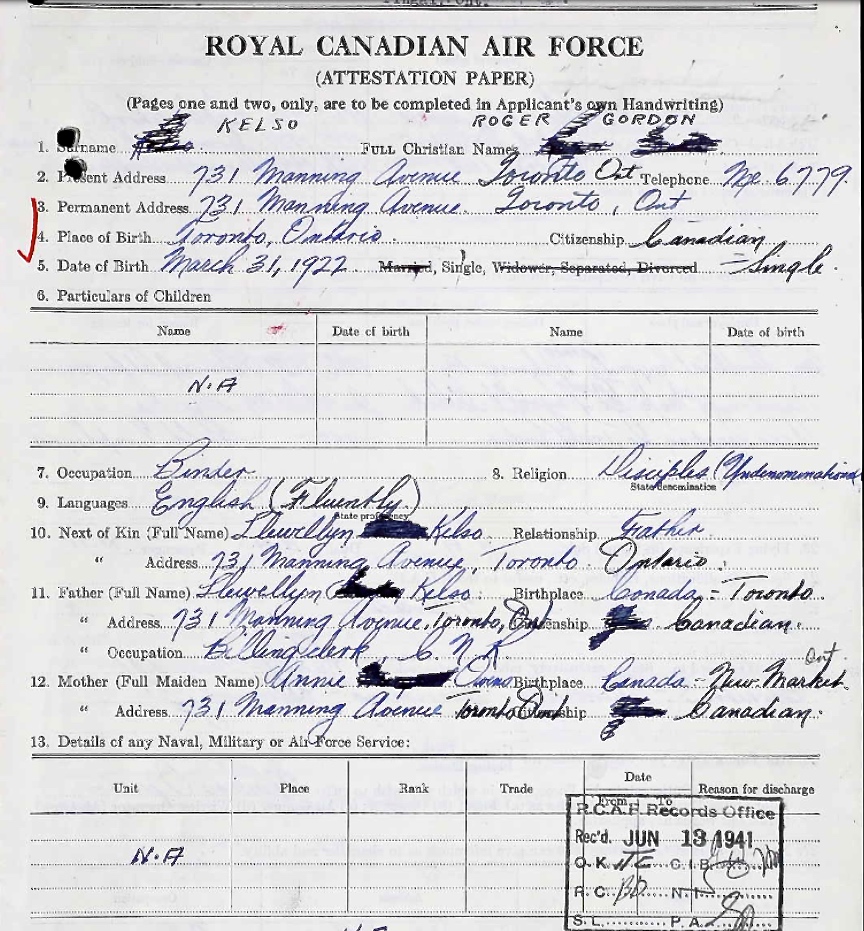 ROYAL CANADIAN AIR FORCE
(ATTESTATION PAPER)
(Pages one and two, only, are to be completed in Applicant's own Handwriting)
KELSO ROGER GORDON
1. Surname FULL Christian Names
2. Present Address 731 Manning Avenue Toronto Ont Telephone Me. 6779.
3. Permanent Address 731 Manning Avenue. Toronto, Ont
4. Place of Birth Toronto, Ontario. Citizenship Canadian
5. Date of Birth March 31, 1922 Married, Single, Widower, Separated, Divorced - Single.
6. Particulars of Children
Name Date of birth Name Date of birth
N.A
7. Occupation Binder 8. Religion Disciples (Undenominational
State denomination
9. Languages English (Fluently)
State proficiency
10. Next of Kin (Full Name) Llewellyn Kelso Relationship Father
" Address 731 Manning Avenue, Toronto. Ontario.
11. Father (Full Name) Llewellyn Kelso. Birthplace Canada - Toronto
" Address 731 Manning Avenue, Toronto, Ont Citizenship Canadian.
" Occupation Billing clerk, C.N.R
12. Mother (Full Maiden Name) Annie Birthplace Canada - New Market Ont
" Address 731 Manning Avenue Toronto Ont Citizenship Canadian.
13. Details of any Naval, Military or Air Force Service:
Unit Place Rank Trade Date Reason for discharge
From To
N.A
R.C.A.F. Records Office
Rec'd. JUN 13 1941
O.K. C.I.B.
R.C. N.I.
S.L. P.A.